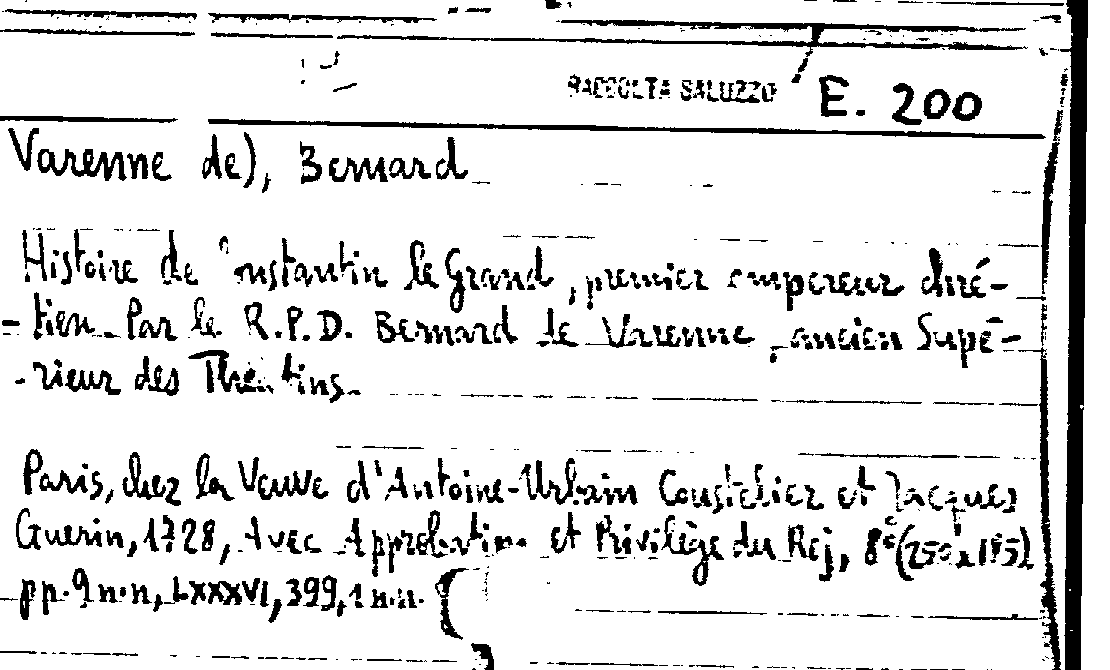 RACCOLTA SALUZZO E. 200
Varenne de), Bernard
Histoire de Constantin le Grand, premier empereur chré-
=tien. Par le R.P.D. Bernard de Varenne, ancien Supé-
-rieur des Théatins.
Paris, chez la Veuve d'Antoine-Urbain Coustelier et Jacques
Guerin, 1728, Avec Approbation et Privilège du Roj, 8° (250x185)
pp. 9 n.n, LXXXVI, 399, 1 n.n.